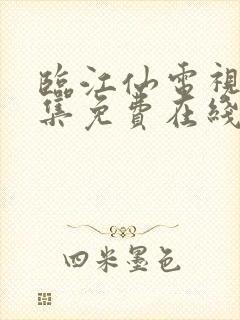 臨江仙電視
集免費在綫
四米墨色